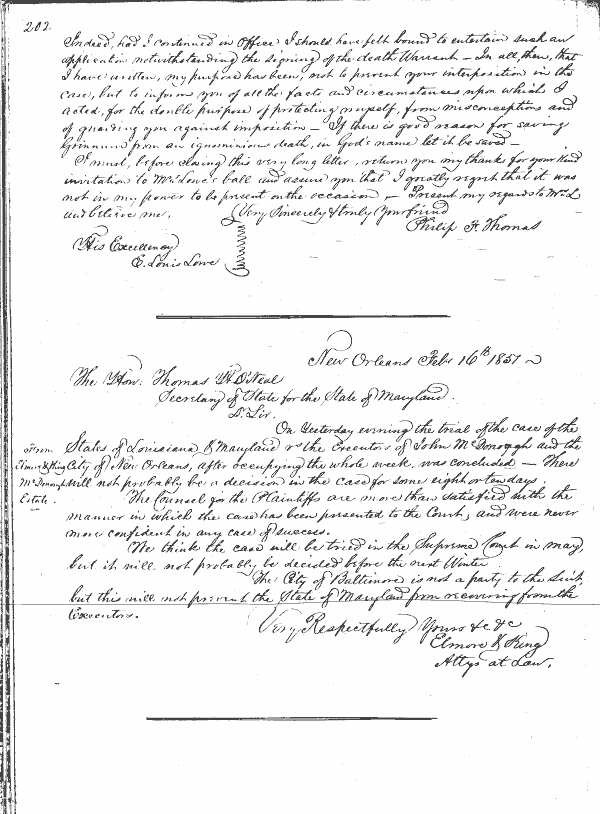 202.
Indeed, had I continued in Office I should have felt bound to entertain such an
application notwithstanding the signing of the death Warrant – In all, then, that
I have written, my purpose has been, not to prevent your interposition in the
case, but to inform you of all the facts and circumstances upon which I
acted, for the double purpose of protecting myself, from misconceptions and
of guarding you against imposition – If there is good reason for saving
from an ignominious death, in God's name let it be saved –
I must, before closing this very long letter, return you my thanks for your kind
invitation to Mrs. Lowe's ball and assure you that I greatly regret that it was
not in my power to be present on the occasion – Present my regards to Mrs. L
and believe me,
Very Sincerely & truly Your friend
Philip F. Thomas
His Excellency
E. Louis Lowe
New Orleans Feby 16th 1851
The Hon: Thomas H. O'Neal
Secretary of State for the State of Maryland.
D. Sir.
On Yesterday evening the trial of the case of the
States of Louisiana & Maryland vs the Executors of John McDonogh and the
City of New Orleans, after occupying the whole week, was concluded – There
will not probably be a decision in the case for some eight or ten days.
From
Elmore & King
McDonogh
Estate.
The Counsel for the Plaintiffs are more than satisfied with the
manner in which the case has been presented to the Court, and were never
more confident in any case of success.
We think the case will be tried in the Supreme Court in may,
but it will not probably be decided before the next Winter
The City of Baltimore is not a party to the suit,
but this will not prevent the State of Maryland from recovering from the
Executors.
Very Respectfully Yours &c &c
Elmore & King
Attys at Law.